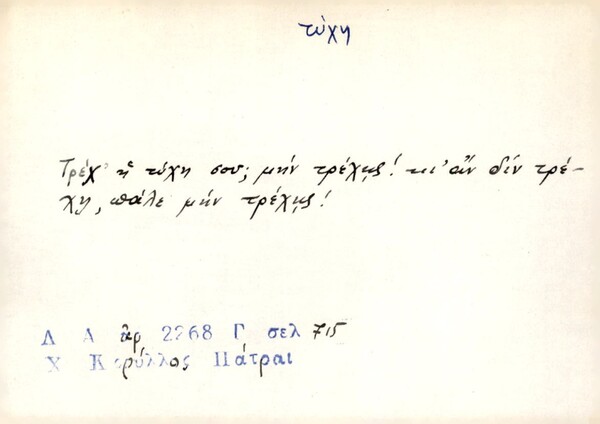 τύχη
Τρέχ' ἡ τύχη σου; μήν τρέχῃς! κι' ἄν δέν τρέ-
χῃ, πάλε μήν τρέχῃς!
Λ Α ἀρ 2268 Γ σελ 715
Χ Κορύλλος Πάτραι